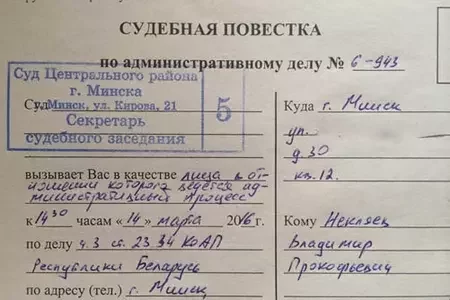 СУДЕБНАЯ ПОВЕСТКА
по административному делу № 6-943
Суд Центрального района
г. Минска
Минск, ул. Кирова, 21
Секретарь
судебного заседания
5
Суд
вызывает Вас в качестве лица в от-
ношении которого ведется ад-
министративный процесс
к 14 30 часам «14» марта 2016 г.
по делу ч.3 ст. 23.34 КоАП
Республики Беларусь
по адресу (тел.) г. Минск
Куда г. Минск
ул.
д. 30
кв. 12.
Кому Некляев
Владимир
Прокофьевич